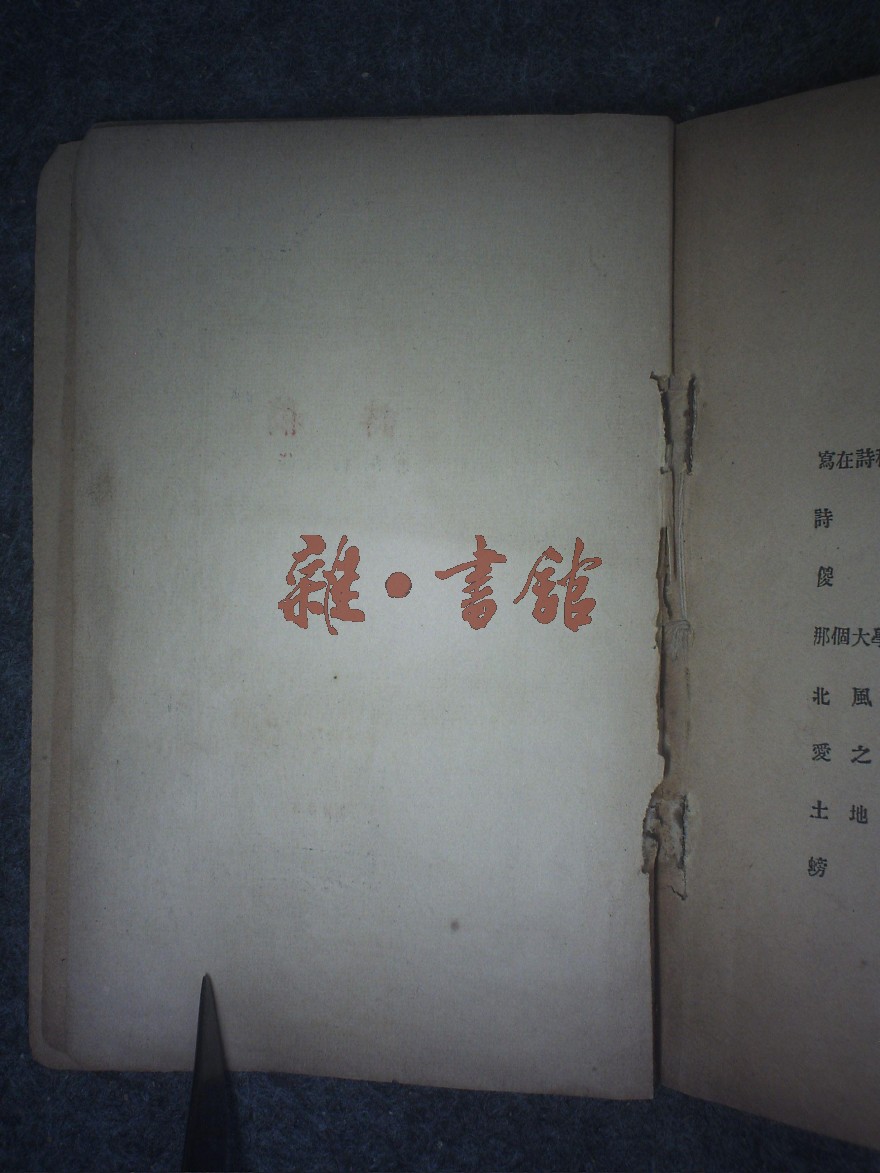 雜·書館
寫在詩
詩
傻
那個大學
北風
愛之
土地
螃